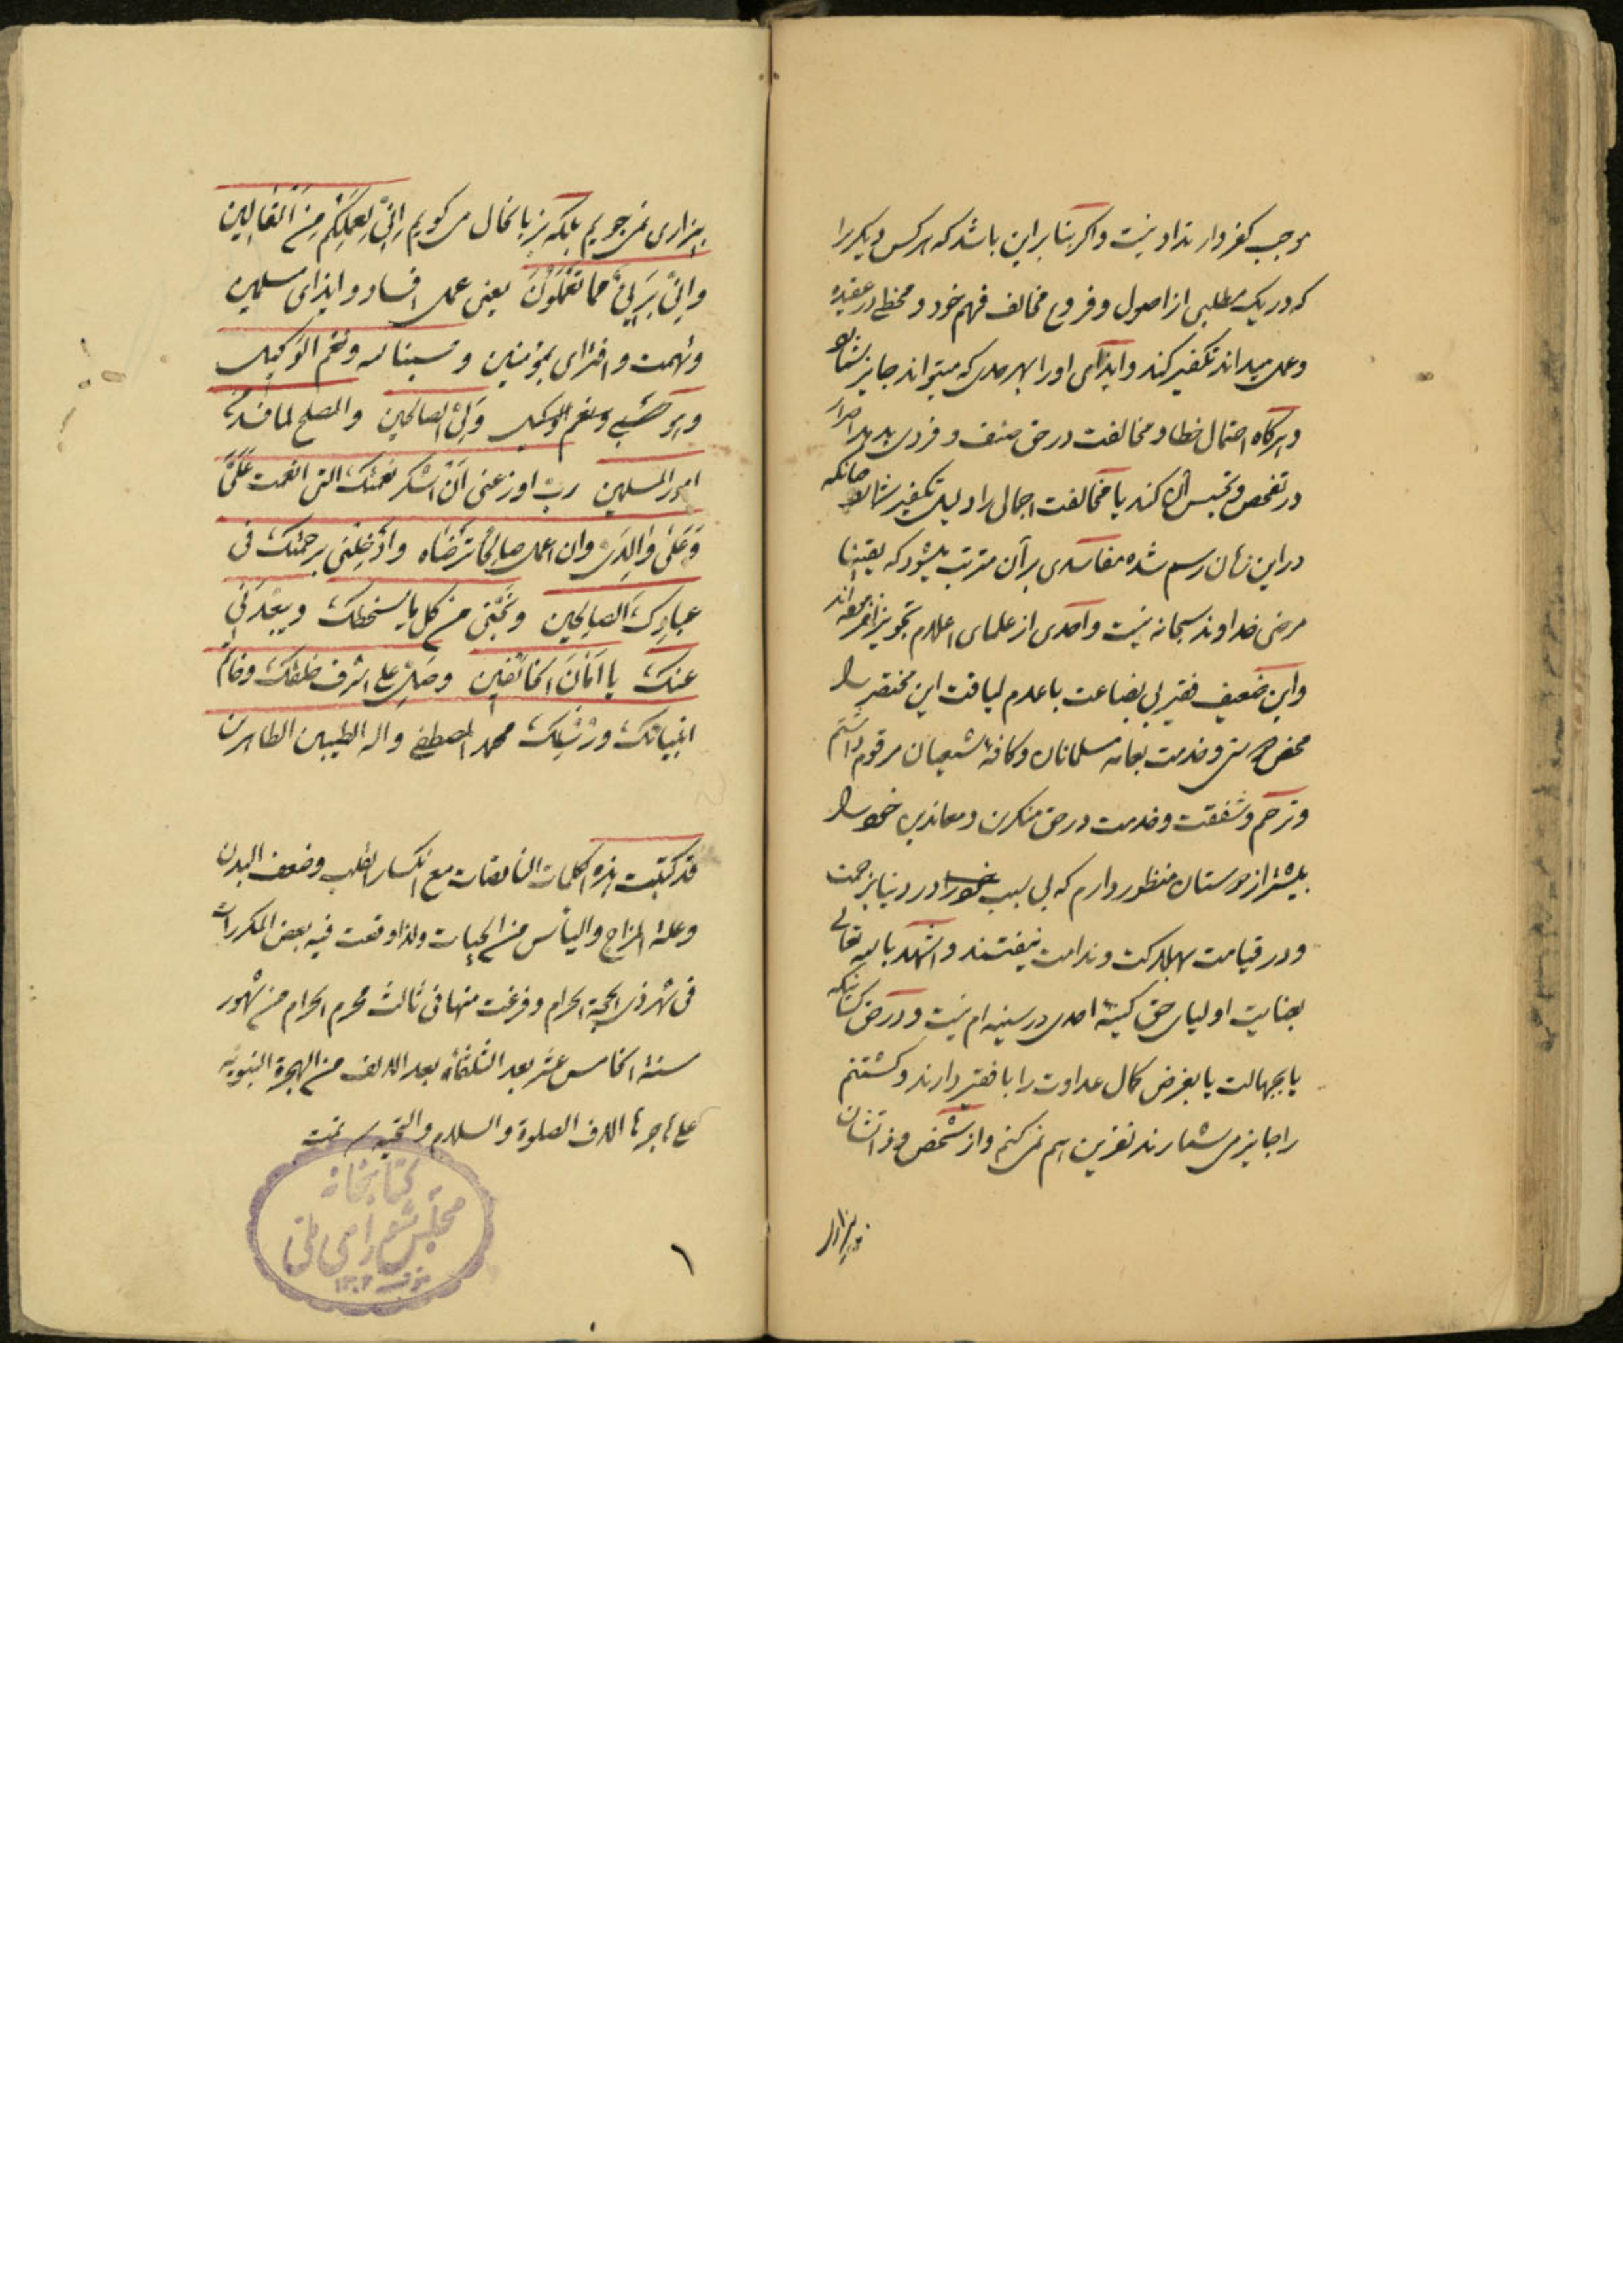 موجب کفر و ارتداد نیست و اگر بنا بر این باشد که هر کس دیگر را
که در یک مطلبی از اصول و فروع مخالف فهم خود و مخطی در عقیده
و عمل میداند تکفیر کند و ایذای او را بهر حدی که میتواند جایز شمارد
و هرگاه احتمال خطا و مخالفت در حق صنف و فردی بدهد اصرار
در تفحص و تجسس آن کند یا مخالفت اجمال را دلیل تکفیر شمارد چنانکه
در این زمان رسم شده مفاسدی بر آن مترتب میشود که یقینا
مرضی خداوند سبحانه نیست و احدی از علمای اعلام تجویز نفرموده‌اند
و این ضعیف فقیر بی بضاعت با عدم لیاقت این مختصر را
محض و خدمت بعامه مسلمانان و کافهٔ شیعیان مرقوم داشتم
و ترحم و شفقت و خدمت در حق منکرین و معاندین خود را
بیشتر از دوستان منظور دارم که بی سبب خود را در دنیا بزحمت
و در قیامت بهلاکت و ندامت نیفتند و اشهد بالله تعالی
بعنایت اولیای حق کینهٔ احدی در سینه ام نیست و در حق کسانیکه
یا بجهالت یا بغرض کمال عداوت را با فقیر دارند و کشتنم
را جایز می شمارند نفرین هم نمی کنم و از شخص و ذاتشان
بیزاری
بیزاری نمی جویم بلکه بزبانحال می گویم اِنّی لِعَمَلِکُم مِنَ القالین
و اِنّی بَریٌ مما تَعمَلون یعنی عمل افساد و ایذای مسلمین
و تهمت و افترای بمؤمنین و حسبنا الله و نعم الوکیل
و هو حسبی و نعم الوکیل و لیّ الصالحین و المصلح لما فسد من
امور المسلمین ربّ اوزعنی اَن اَشکر نعمتک التی انعمت عَلَیَّ
وَ عَلی والِدَیَّ و ان اعمل صالحاً ترضاه و ادخلنی برحمتک فی
عبادک الصالحین و نَجّنی من کل ما یسخطک و یبعّدنی
عنک یا اَمانَ الخائفین و صلّ علی اشرف خلقک و خاتم
انبیائک و رسلک محمد المصطفی و اله الطیبین الطاهرین
قد کتبت هذه الکلمات النافعات مع انکسار القلب و ضعف البدن
و علة المزاج و الیأس من الحیات و لذا وقعت فیه بعض المکررات
فی شهر ذی الحجة الحرام و فرغت منها فی ثالث محرم الحرام من شهور
سنة الخامس عشر بعد الثلثمأة بعد الالف من الهجرة النبویه
علی هاجرها الاف الصلوة و السلام و التحیه تمت
کتابخانه
مجلس شورای ملی
۱۳۰۲
۱